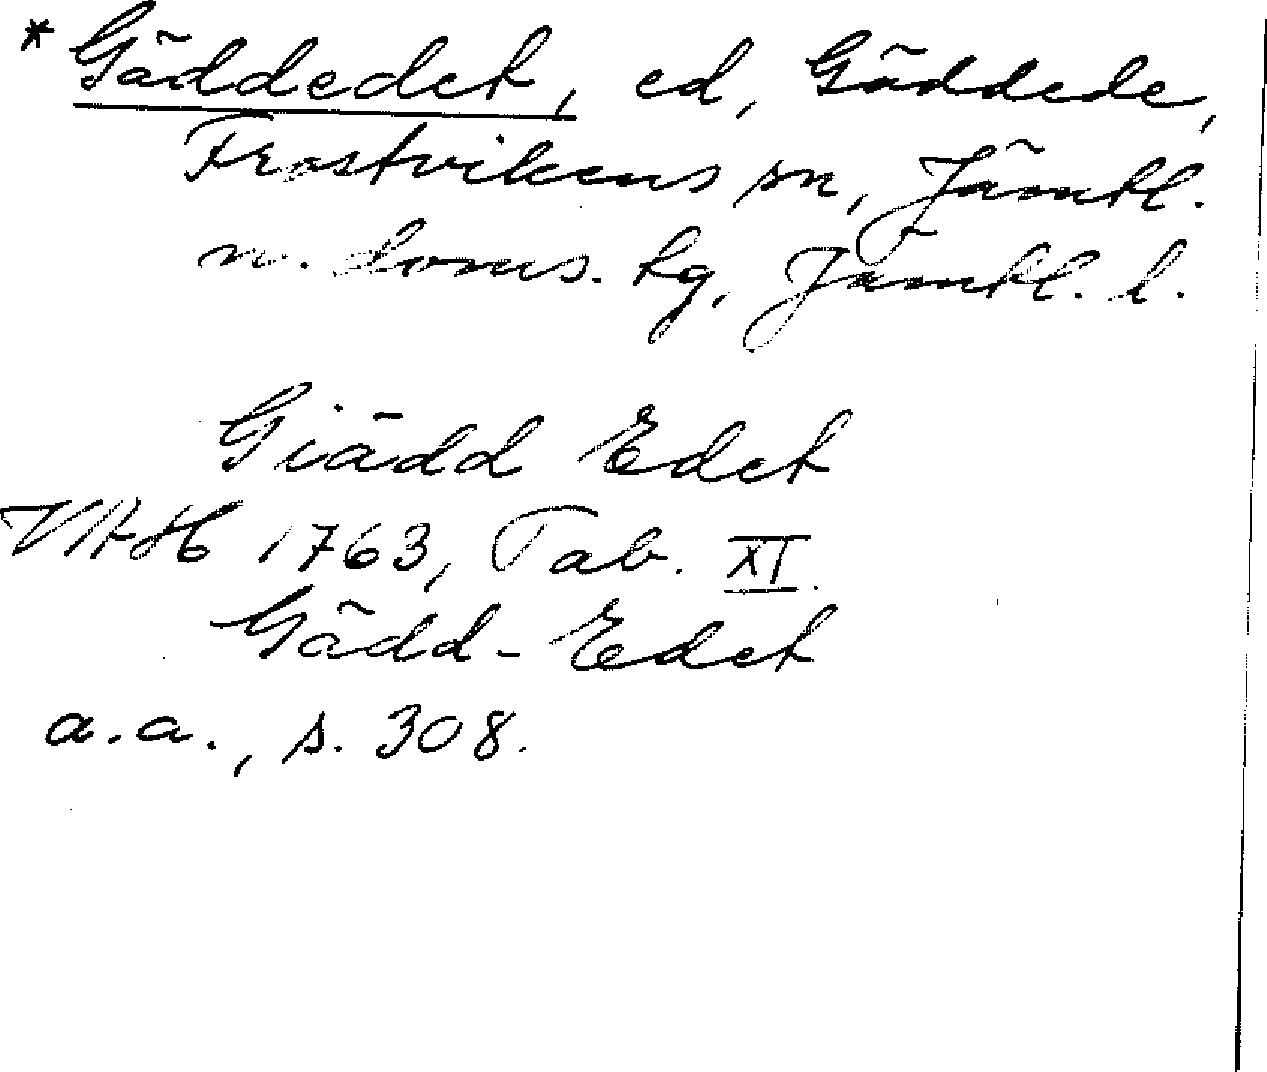 * Gäddedet, ed, Gäddede,
Frostvikens sn, Jämtl.
n. doms. tg, Jämtl. l.
Giädd Edet
VAH 1763, Tab. XI.
Gädd-Edet
a.a., s. 308.